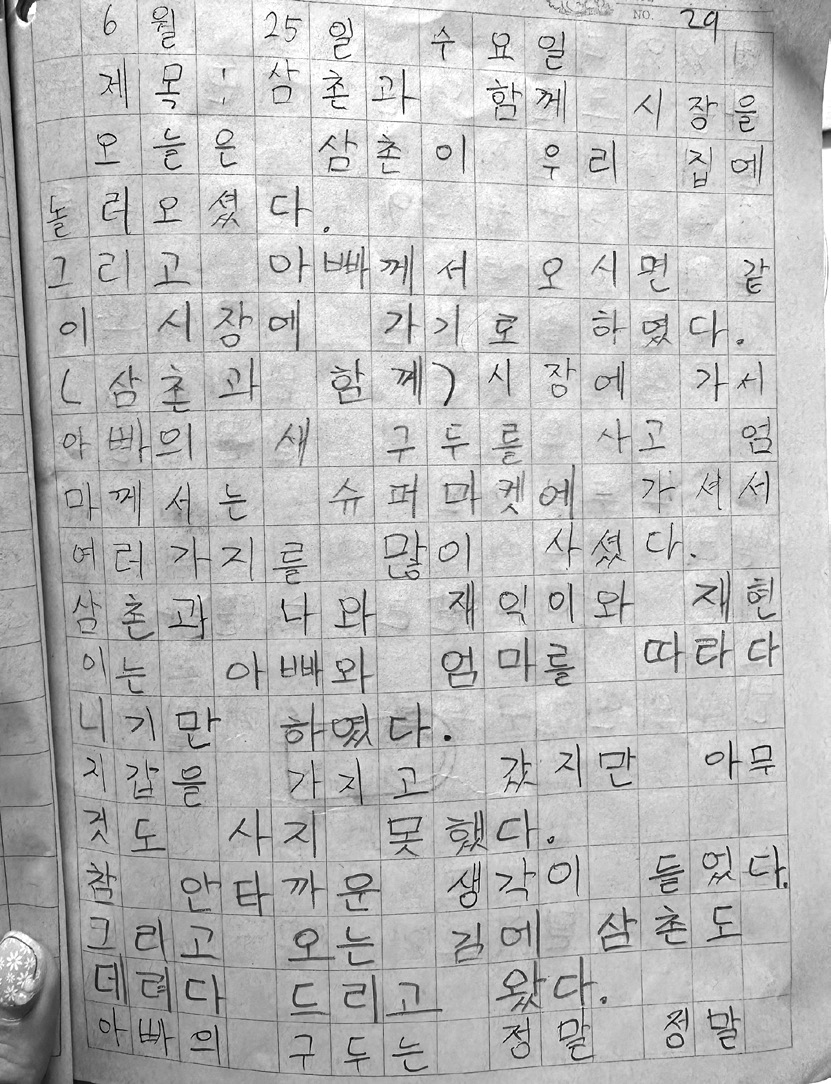 NO. 29
6월 25일 수요일
제목: 삼촌과 함께 시장을
오늘은 삼촌이 우리 집에
놀러오셨다.
그리고 아빠께서 오시면 같
이 시장에 가기로 하였다.
(삼촌과 함께) 시장에 가서
아빠의 새 구두를 사고 엄
마께서는 슈퍼마켓에 가셔서
여러가지를 많이 사셨다.
삼촌과 나와 재익이와 재현
이는 아빠와 엄마를 따타다
니기만 하였다.
지갑을 가지고 갔지만 아무
것도 사지 못했다.
참 안타까운 생각이 들었다.
그리고 오는 김에 삼촌도
데려다 드리고 왔다.
아빠의 구두는 정말 정말